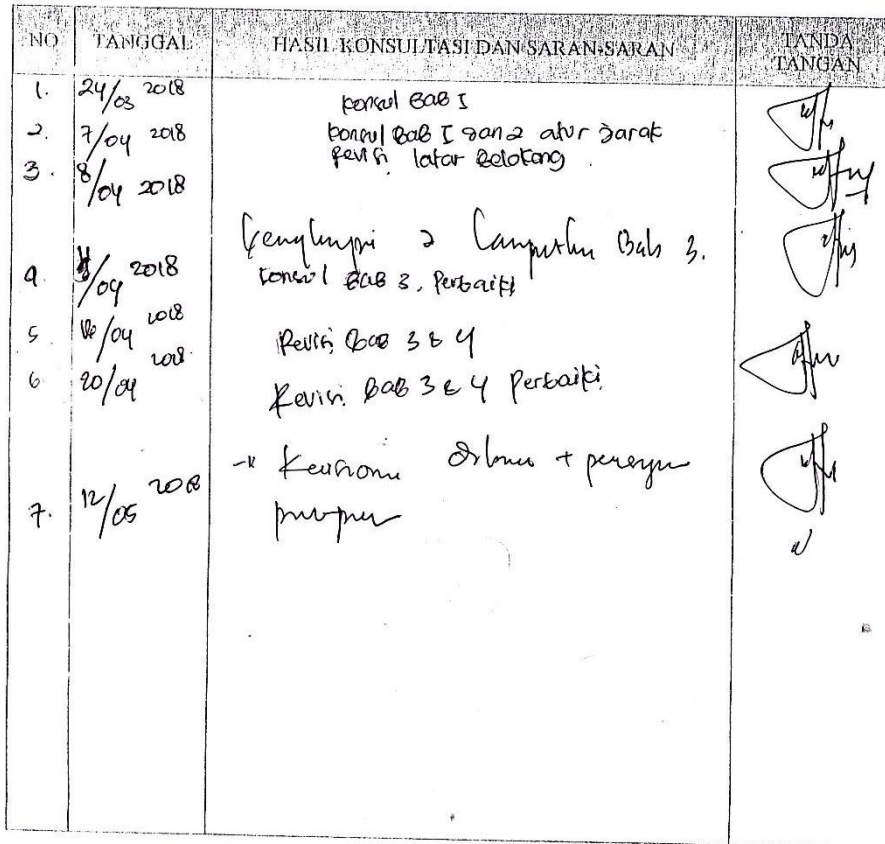 NO TANGGAL HASIL KONSULTASI DAN SARAN-SARAN TANDA TANGAN
1. 24/03 2018 konsul BAB I
2. 7/04 2018 konsul BAB I dan 2 atur Jarak
Revisi latar Belakang
3. 8/04 2018
Lengkapi 2 Lanjutkan Bab 3.
4. /04 2018 konsul BAB 3, Perbaiki
5 /04 2018 Revisi BAB 3 & 4
6 20/04 2018 Revisi BAB 3 & 4 Perbaiki
7. 12/05 2018